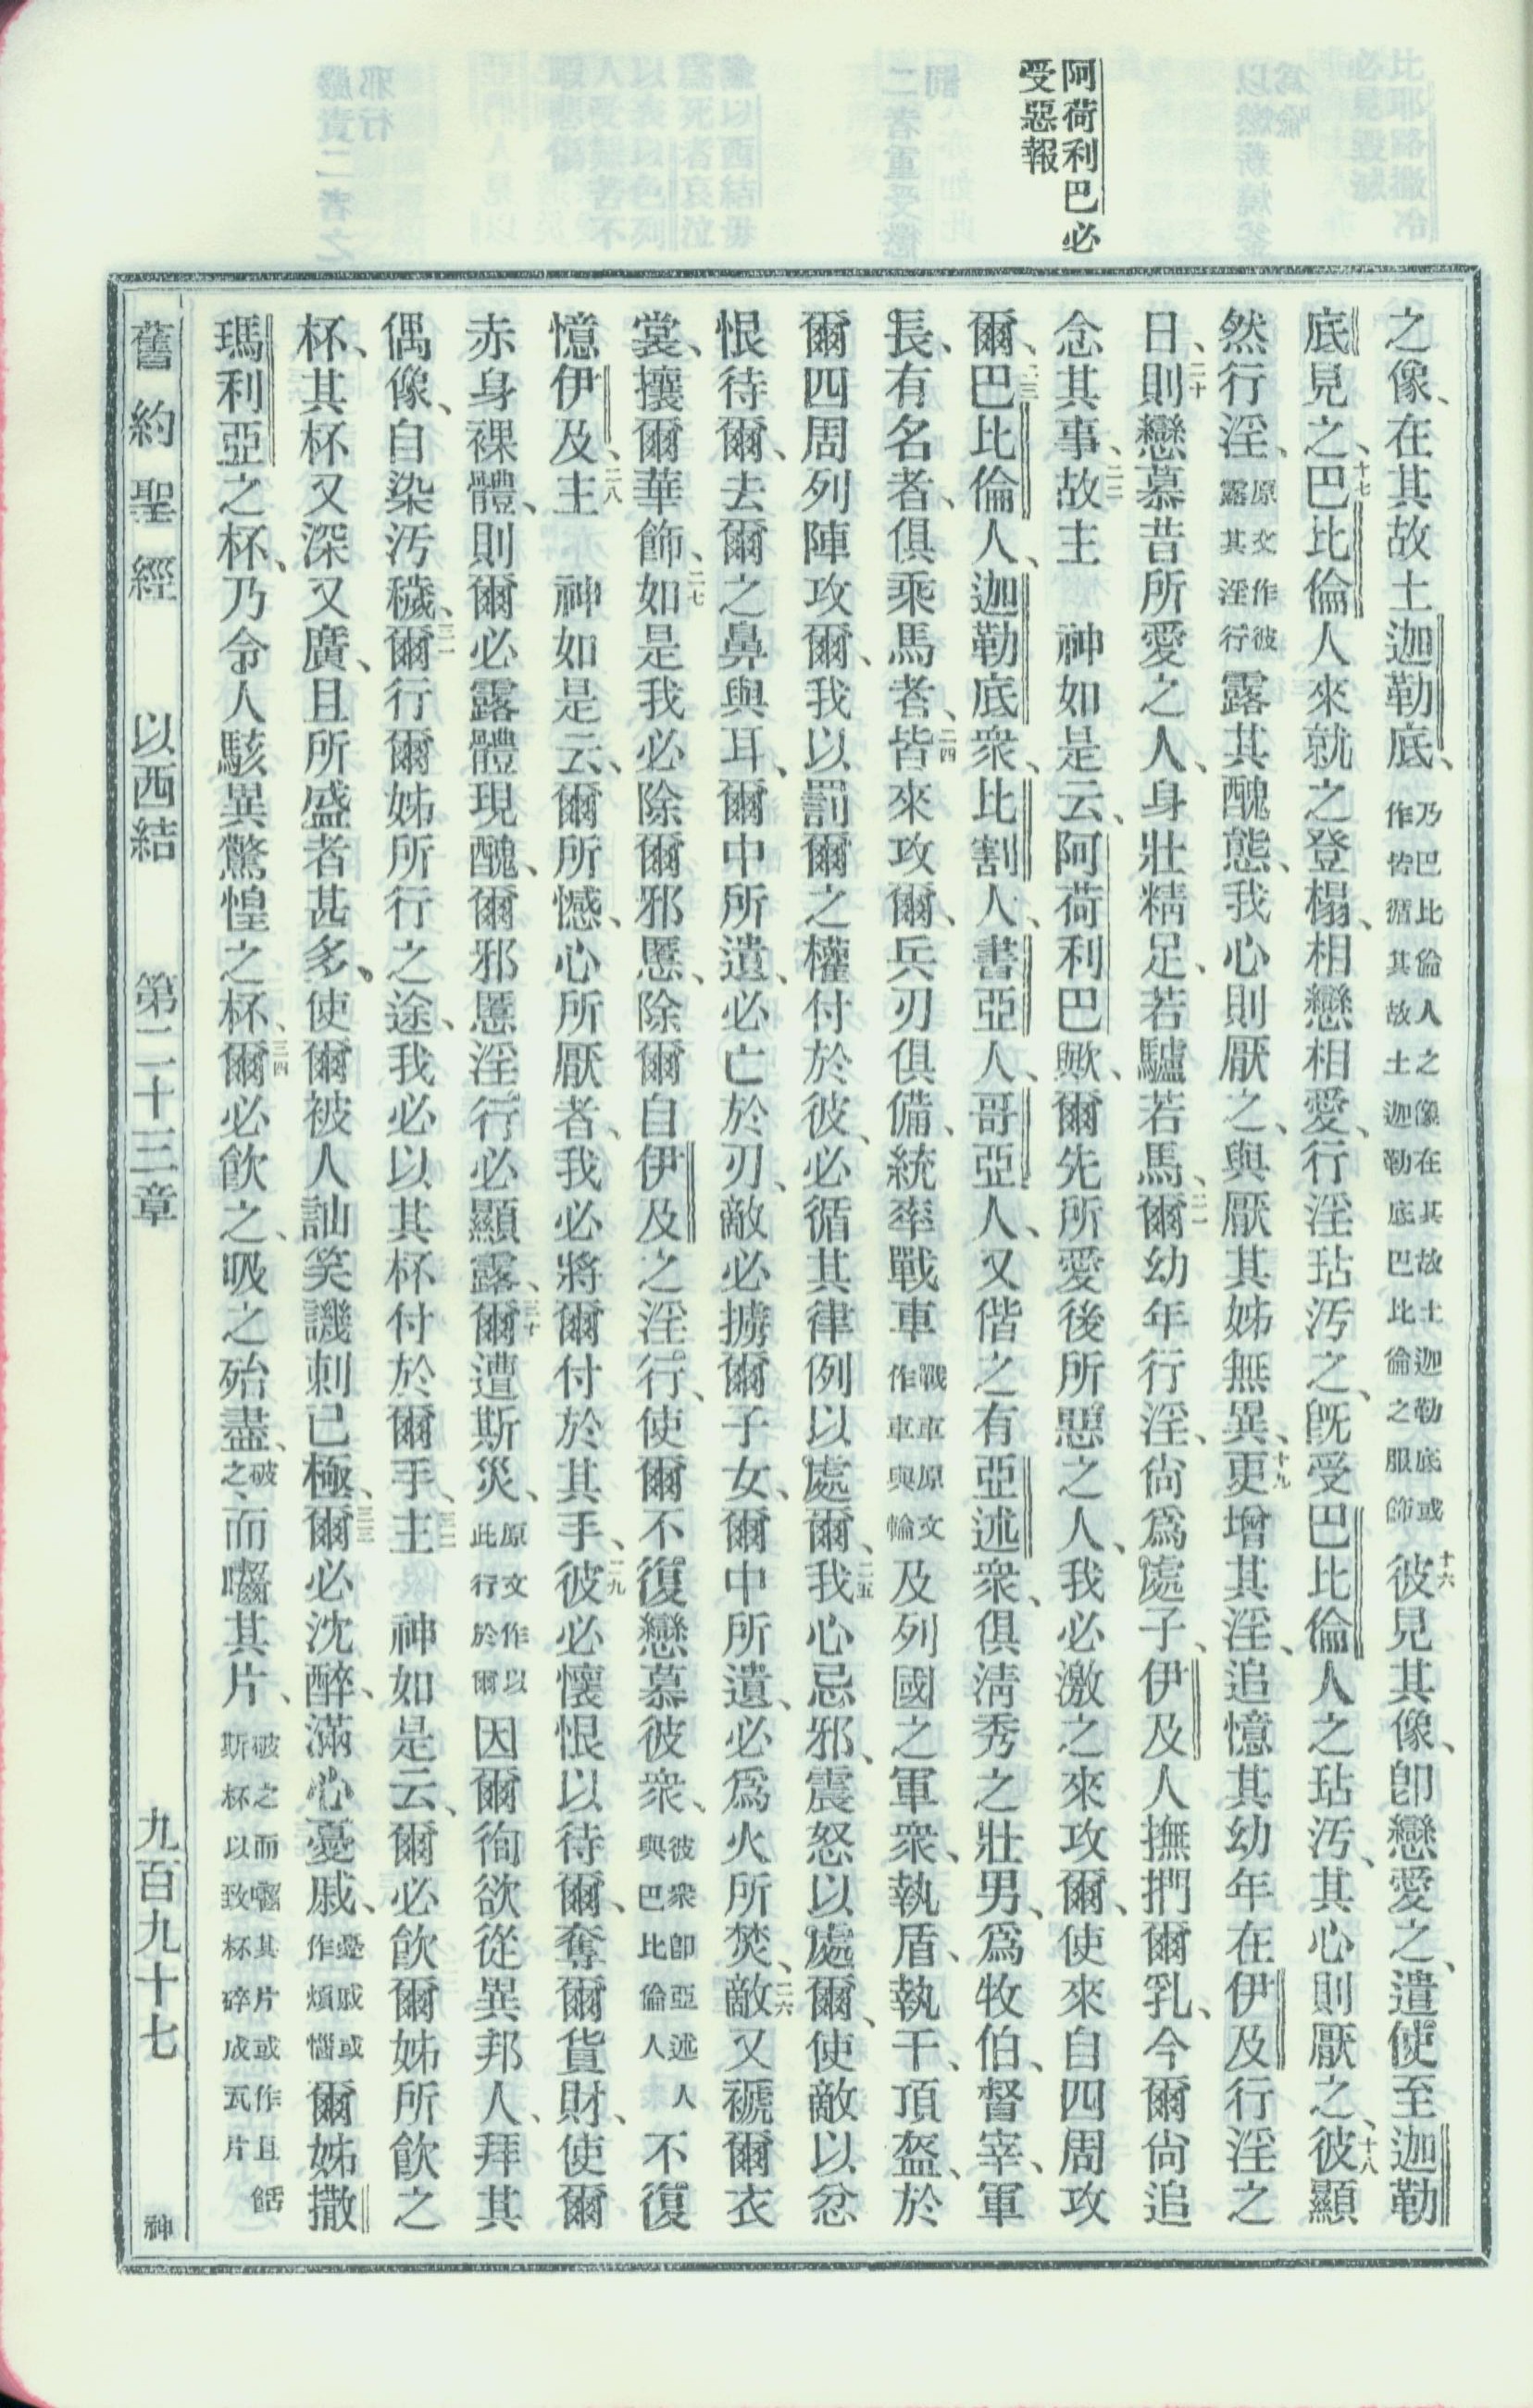 阿荷利巴必
受惡報
之像、在其故土迦勒底、乃巴比倫人之像在其故土迦勒底或作皆循其故土迦勒底巴比倫之服飾十六彼見其像、卽戀愛之、遣使至迦勒
底見之、十七巴比倫人來就之登榻、相戀相愛、行淫玷汚之、旣受巴比倫人之玷汚、其心則厭之、十八彼顯
然行淫、原文作彼露其淫行露其醜態、我心則厭之、與厭其姊無異、十九更增其淫、追憶其幼年在伊及行淫之
日、二十則戀慕昔所愛之人、身壯精足、若驢若馬、二一爾幼年行淫、尙爲處子、伊及人撫捫爾乳、今爾尙追
念其事、二二故主 神如是云、阿荷利巴歟、爾先所愛後所惡之人、我必激之來攻爾、使來自四周攻
爾、二三巴比倫人、迦勒底衆、比割人、書亞人、哥亞人、又偕之有亞述衆、俱淸秀之壯男、爲牧伯、督宰、軍
長、有名者、俱乘馬者、二四皆來攻爾、兵刃俱備、統率戰車戰車原文作車與輪及列國之軍衆、執盾、執干、頂盔、於
爾四周列陣攻爾、我以罰爾之權付於彼、必循其律例以處爾、二五我心忌邪、震怒以處爾、使敵以忿
恨待爾、去爾之鼻與耳、爾中所遺、必亡於刃、敵必擄爾子女、爾中所遺、必爲火所焚、二六敵又褫爾衣
裳、攘爾華飾、二七如是我必除爾邪慝、除爾自伊及之淫行、使爾不復戀慕彼衆、彼衆卽亞述人與巴比倫人不復
憶伊及、二八主 神如是云、爾所憾、心所厭者、我必將爾付於其手、二九彼必懷恨以待爾、奪爾貨財、使爾
赤身裸體、則爾必露體現醜、爾邪慝淫行必顯露、三十爾遭斯災、原文作以此行於爾因爾徇欲從異邦人、拜其
偶像、自染汚穢、三一爾行爾姊所行之途、我必以其杯付於爾手、三二主 神如是云、爾必飮爾姊所飮之
杯、其杯又深又廣、且所盛者甚多、使爾被人訕笑譏刺已極、三三爾必沈醉、滿心憂戚、憂戚或作煩惱爾姊撒
瑪利亞之杯、乃令人駭異驚惶之杯、三四爾必飮之、吸之殆盡、破之、而囓其片、破之而囓其片或作且餂斯杯以致杯碎成瓦片
舊約聖經 以西結 第二十三章 九百九十七 神